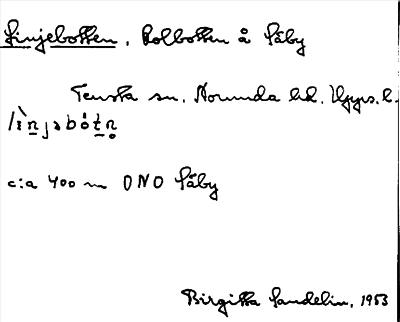 Linjebotten, kolbotten å Såby
Tensta sn. Norunda hd. Upps. l.
lìn̲jəbòt̲n̥
c:a 400 m ONO Såby
Birgitta Sandelin, 1953